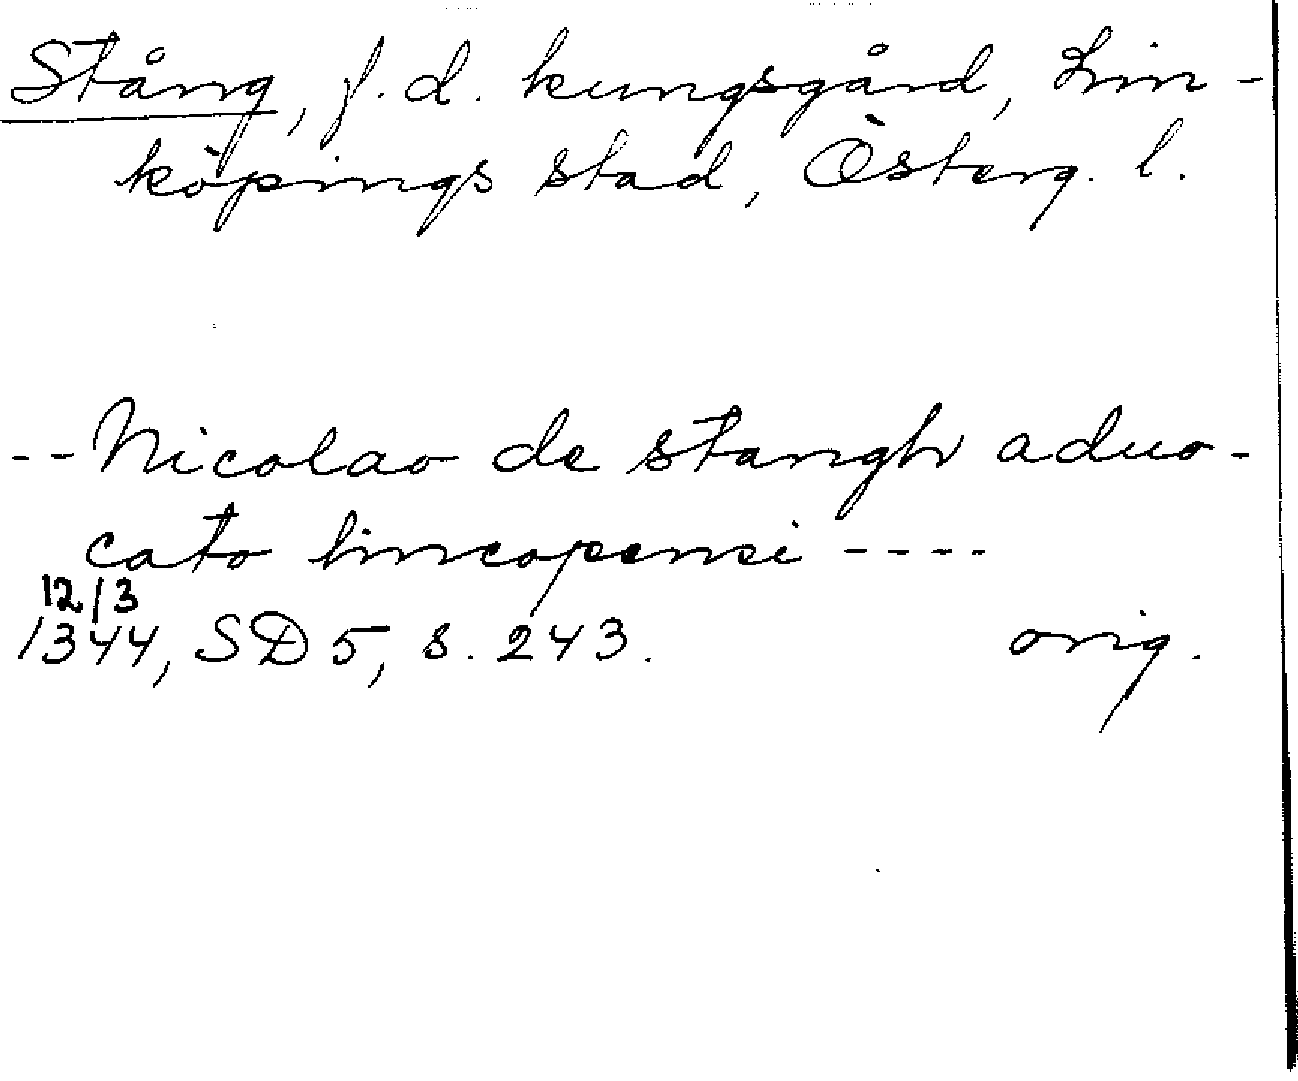 Stång, f. d. kungsgård, Lin-
köpings stad, Österg. l.
--Nicolao de stangh aduo-
cato lincopensi ----
12/3
1344, SD 5, s. 243. orig.